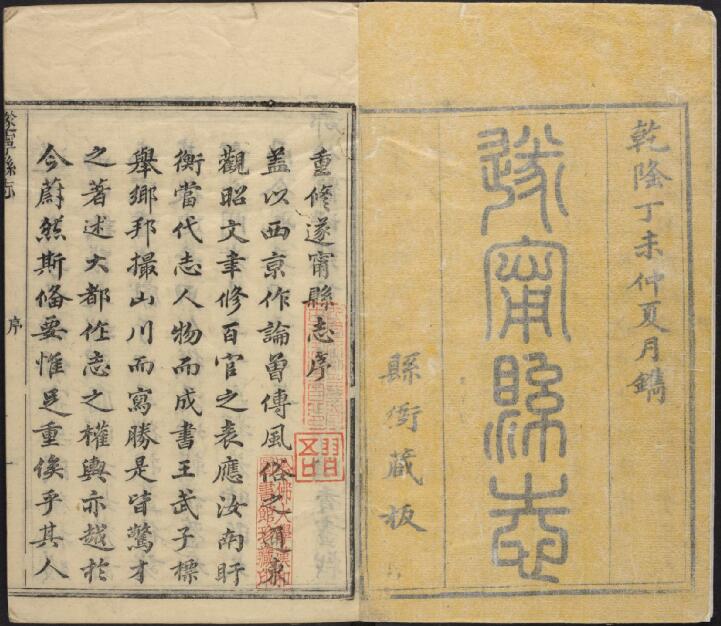 乾隆丁未仲夏月鐫
遂甯縣志
縣衙藏板
重修遂甯縣志序
蓋以西京作論曾傳風俗之通東
觀昭文聿修百官之表應汝南盱
衡當代志人物而成書王武子標
舉鄉邦撮山川而寫勝是皆驚才
之著述大都作志之權輿亦越於
今蔚然斯俻要惟足重俟乎其人
遂寧縣志
序
一